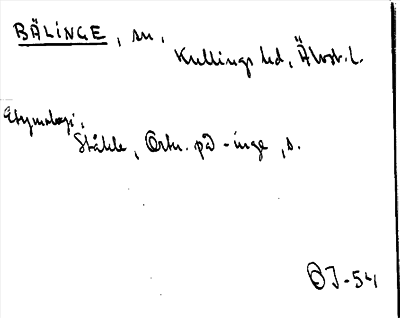 BÄLINGE, sn.
Kullings hd, Älvsb. l.
Etymologi.
Ståhle, Ortn. på -inge, s.
OJ-54